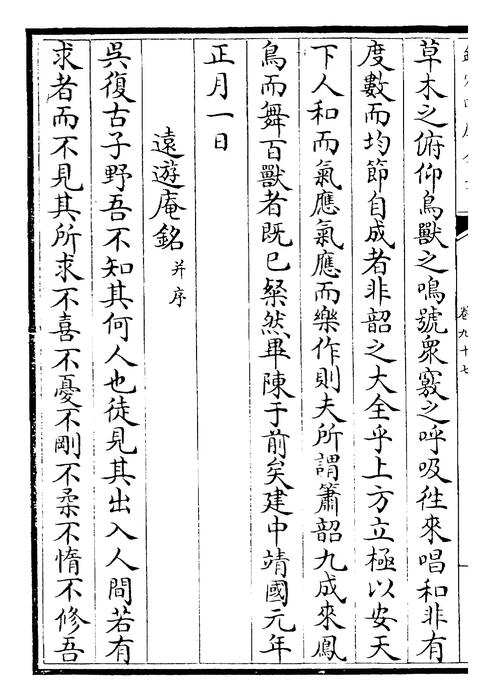 卷九十七
草木之俯仰鳥獸之鳴號衆竅之呼吸徃來唱和非有
度數而均節自成者非韶之大全乎上方立極以安天
下人和而氣應氣應而樂作則夫所謂簫韶九成來鳳
鳥而舞百獸者既已粲然畢陳于前矣建中靖國元年
正月一日
遠遊庵銘并序
吳復古子野吾不知其何人也徒見其出入人間若有
求者而不見其所求不喜不憂不剛不柔不惰不修吾